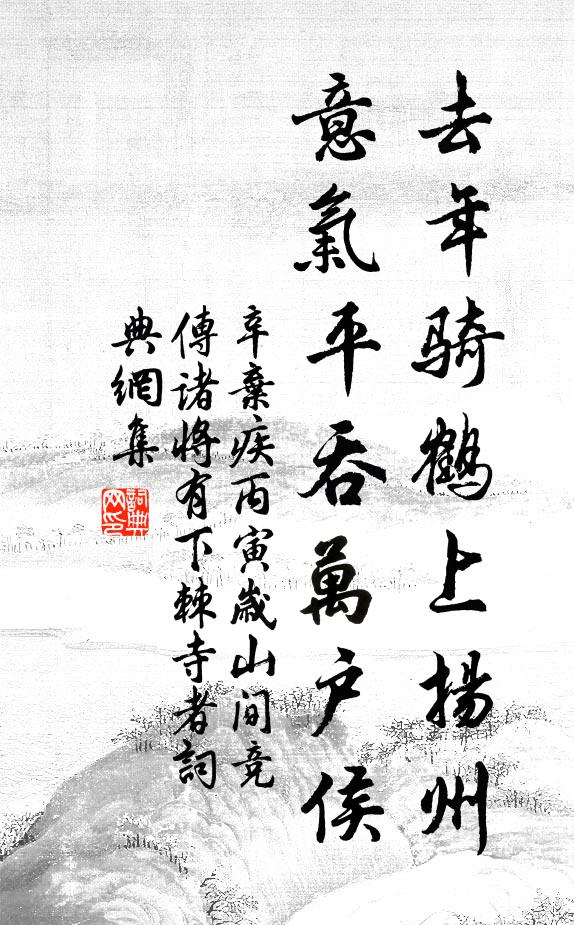 去年骑鹤上揚州
意氣平吞萬户侯
辛棄疾丙寅歲山间竞
傳诸將有下棘寺者詞
典網集
詞典網印